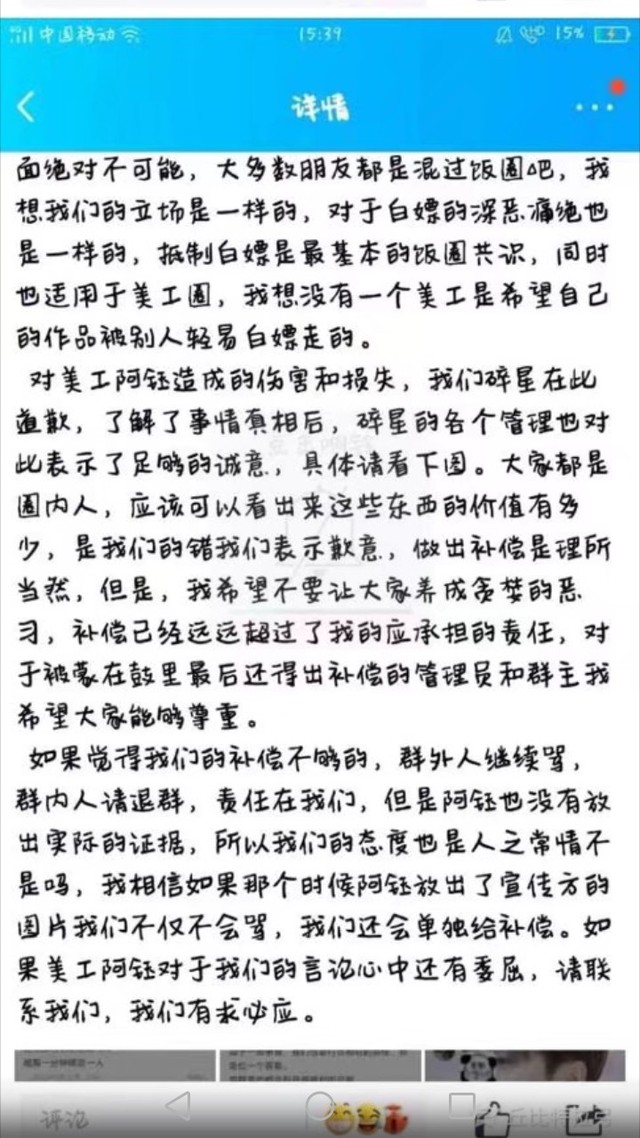 中国移动
15:39
15%
详情
面绝对不可能，大多数朋友都是混过饭圈吧，我
想我们的立场是一样的，对于白嫖的深恶痛绝也
是一样的，抵制白嫖是最基本的饭圈共识，同时
也适用于美工圈，我想没有一个美工是希望自己
的作品被别人轻易白嫖走的。
对美工阿钰造成的伤害和损失，我们碎星在此
道歉，了解了事情真相后，碎星的各个管理也对
此表示了足够的诚意，具体请看下图。大家都是
圈内人，应该可以看出来这些东西的价值有多
少，是我们的错我们表示歉意，做出补偿是理所
当然，但是，我希望不要让大家养成贪婪的恶
习，补偿已经远远超过了我的应承担的责任，对
于被蒙在鼓里最后还得出补偿的管理员和群主我
希望大家能够尊重。
如果觉得我们的补偿不够的，群外人继续骂，
群内人请退群，责任在我们，但是阿钰也没有放
出实际的证据，所以我们的态度也是人之常情不
是吗，我相信如果那个时候阿钰放出了宣传方的
图片我们不仅不会骂，我们还会单独给补偿。如
果美工阿钰对于我们的言论心中还有委屈，请联
系我们，我们有求必应。
评论